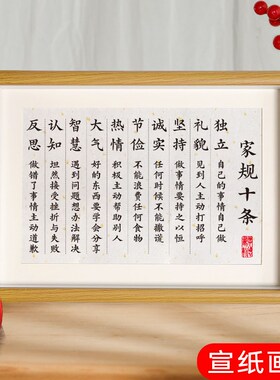 家规十条
独立 自己的事情自己做
礼貌 见到人主动打招呼
坚持 做事情要持之以恒
诚实 任何时候不能撒谎
节俭 不能浪费任何食物
热情 积极主动帮助别人
大气 好的东西要学会分享
智慧 遇到问题想办法解决
认知 坦然接受挫折与失败
反思 做错了事情主动道歉
宣纸画